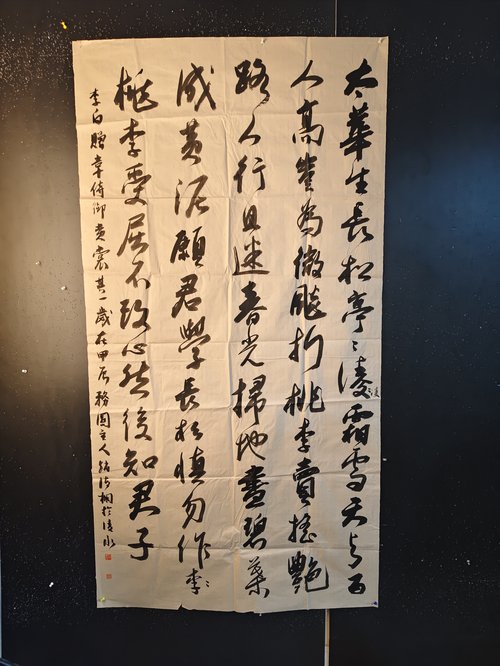 太華生長松亭〻凌霜雪天与百
尺高豈為微飈折桃李賣陽艷
路人行且迷春光掃地盡碧葉
成黄泥願君學長松慎勿作李〻
桃李受屈不改心然後知君子
李白贈韋侍御黄裳其一歲在甲辰園主人於